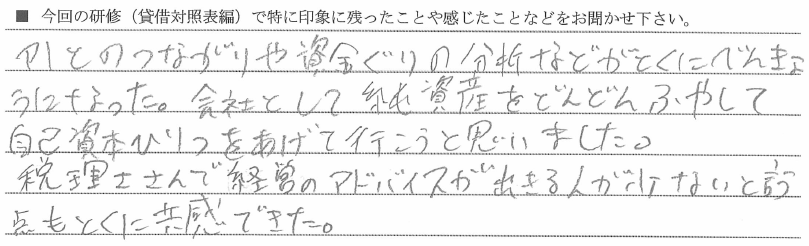 ■ 今回の研修（貸借対照表編）で特に印象に残ったことや感じたことなどをお聞かせ下さい。
P/Lとのつながりや資金ぐりの分析などがとくにべんきょ
うになった。会社として純資産をどんどんふやして
自己資本ひりつをあげて行こうと思いました。
税理士さんで経営のアドバイスが出きる人が少ないと言う
点もとくに共感できた。